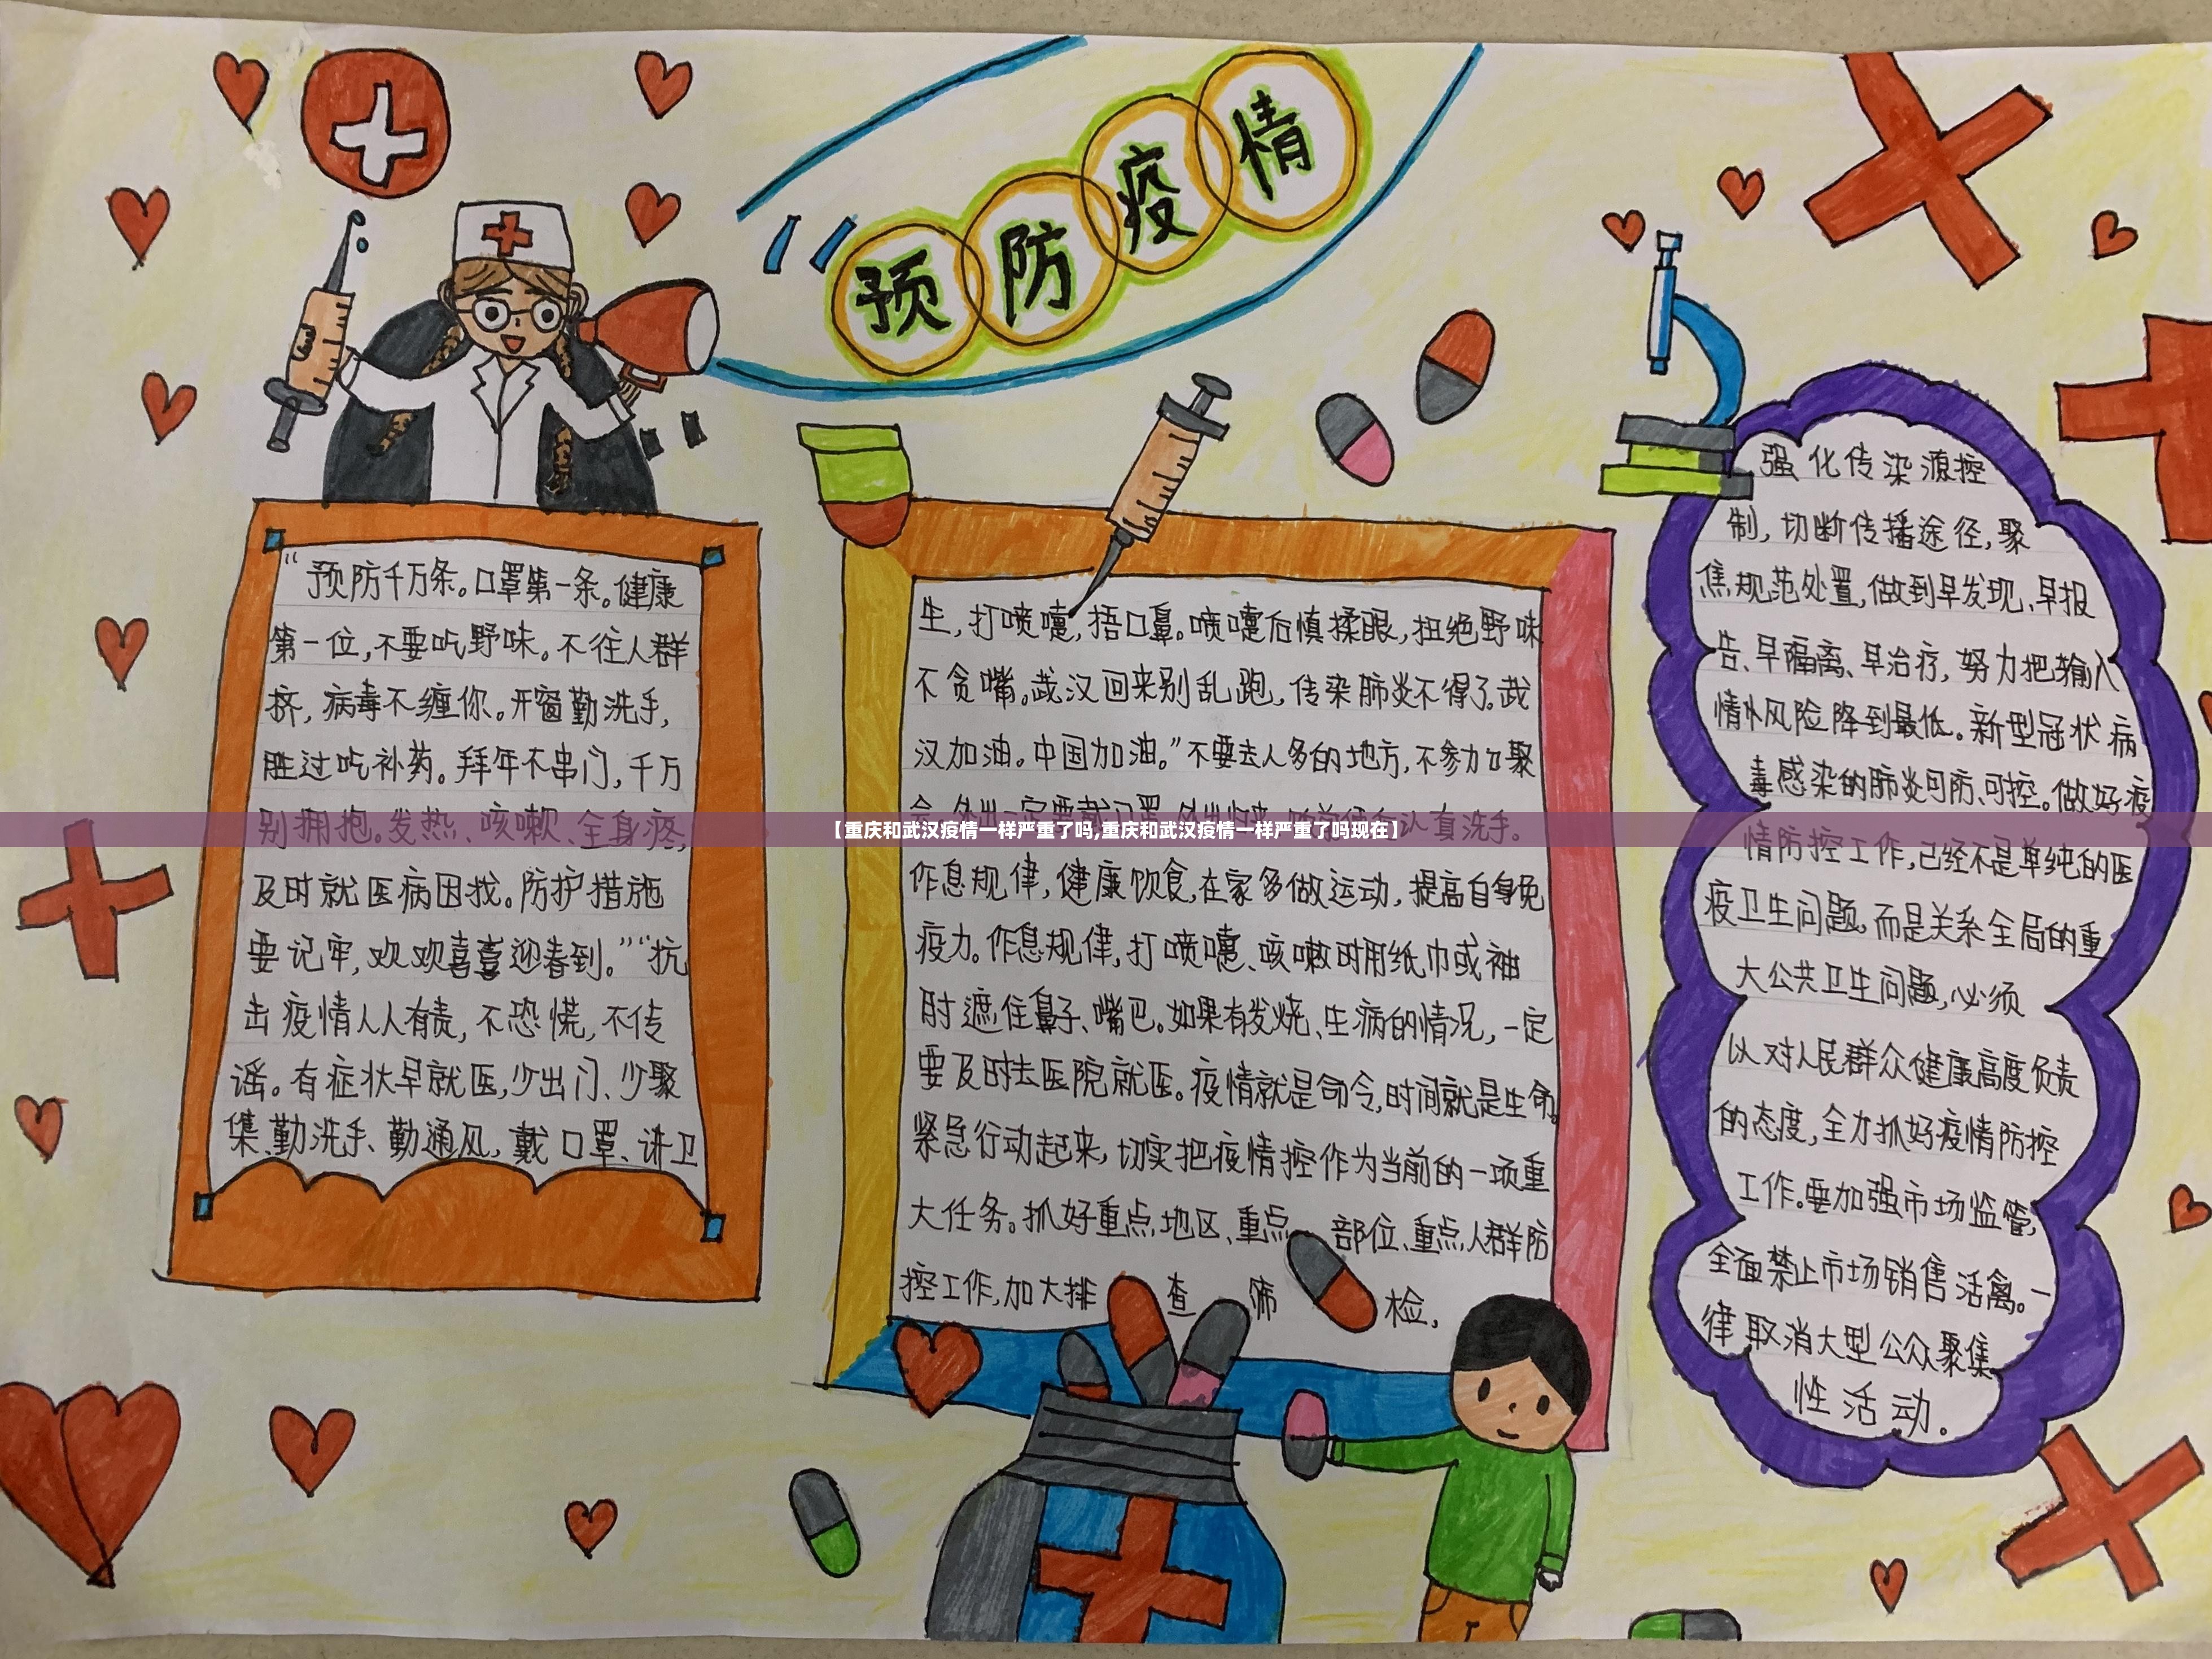 预防疫情
“预防千万条。口罩第一条。健康
第一位,不要吃野味。不往人群
挤,病毒不缠你。开窗勤洗手,
胜过吃补药。拜年不串门,千万
别拥抱。发热、咳嗽、全身疼,
及时就医病因找。防护措施
要记牢,欢欢喜喜迎春到。”“抗
击疫情人人有责,不恐慌,不传
谣。有症状早就医,少出门、少聚
集、勤洗手、勤通风,戴口罩、讲卫
生,打喷嚏,捂口鼻。喷嚏后慎揉眼,拒绝野味
不贪嘴。武汉回来别乱跑,传染肺炎不得了。武
汉加油。中国加油。”不要去人多的地方,不参加聚
会。外出一定要戴口罩,外出归来认真洗手。
【重庆和武汉疫情一样严重了吗,重庆和武汉疫情一样严重了吗现在】
作息规律,健康饮食,在家多做运动,提高自身免
疫力。作息规律,打喷嚏、咳嗽时用纸巾或袖
肘遮住鼻子、嘴巴。如果有发烧、生病的情况,一定
要及时去医院就医。疫情就是命令,时间就是生命。
紧急行动起来,切实把疫情控作为当前的一项重
大任务。抓好重点地区、重点部位、重点人群防
控工作,加大排查筛检,
强化传染源控
制,切断传播途径,聚
焦规范处置,做到早发现、早报
告、早隔离、早治疗,努力把输入
情外风险降到最低。新型冠状病
毒感染的肺炎可防、可控。做好疫
情防控工作,已经不是单纯的医
疫卫生问题,而是关系全局的重
大公共卫生问题,必须
以对人民群众健康高度负责
的态度,全力抓好疫情防控
工作。要加强市场监管,
全面禁止市场销售活禽。一
律取消大型公众聚集
性活动。